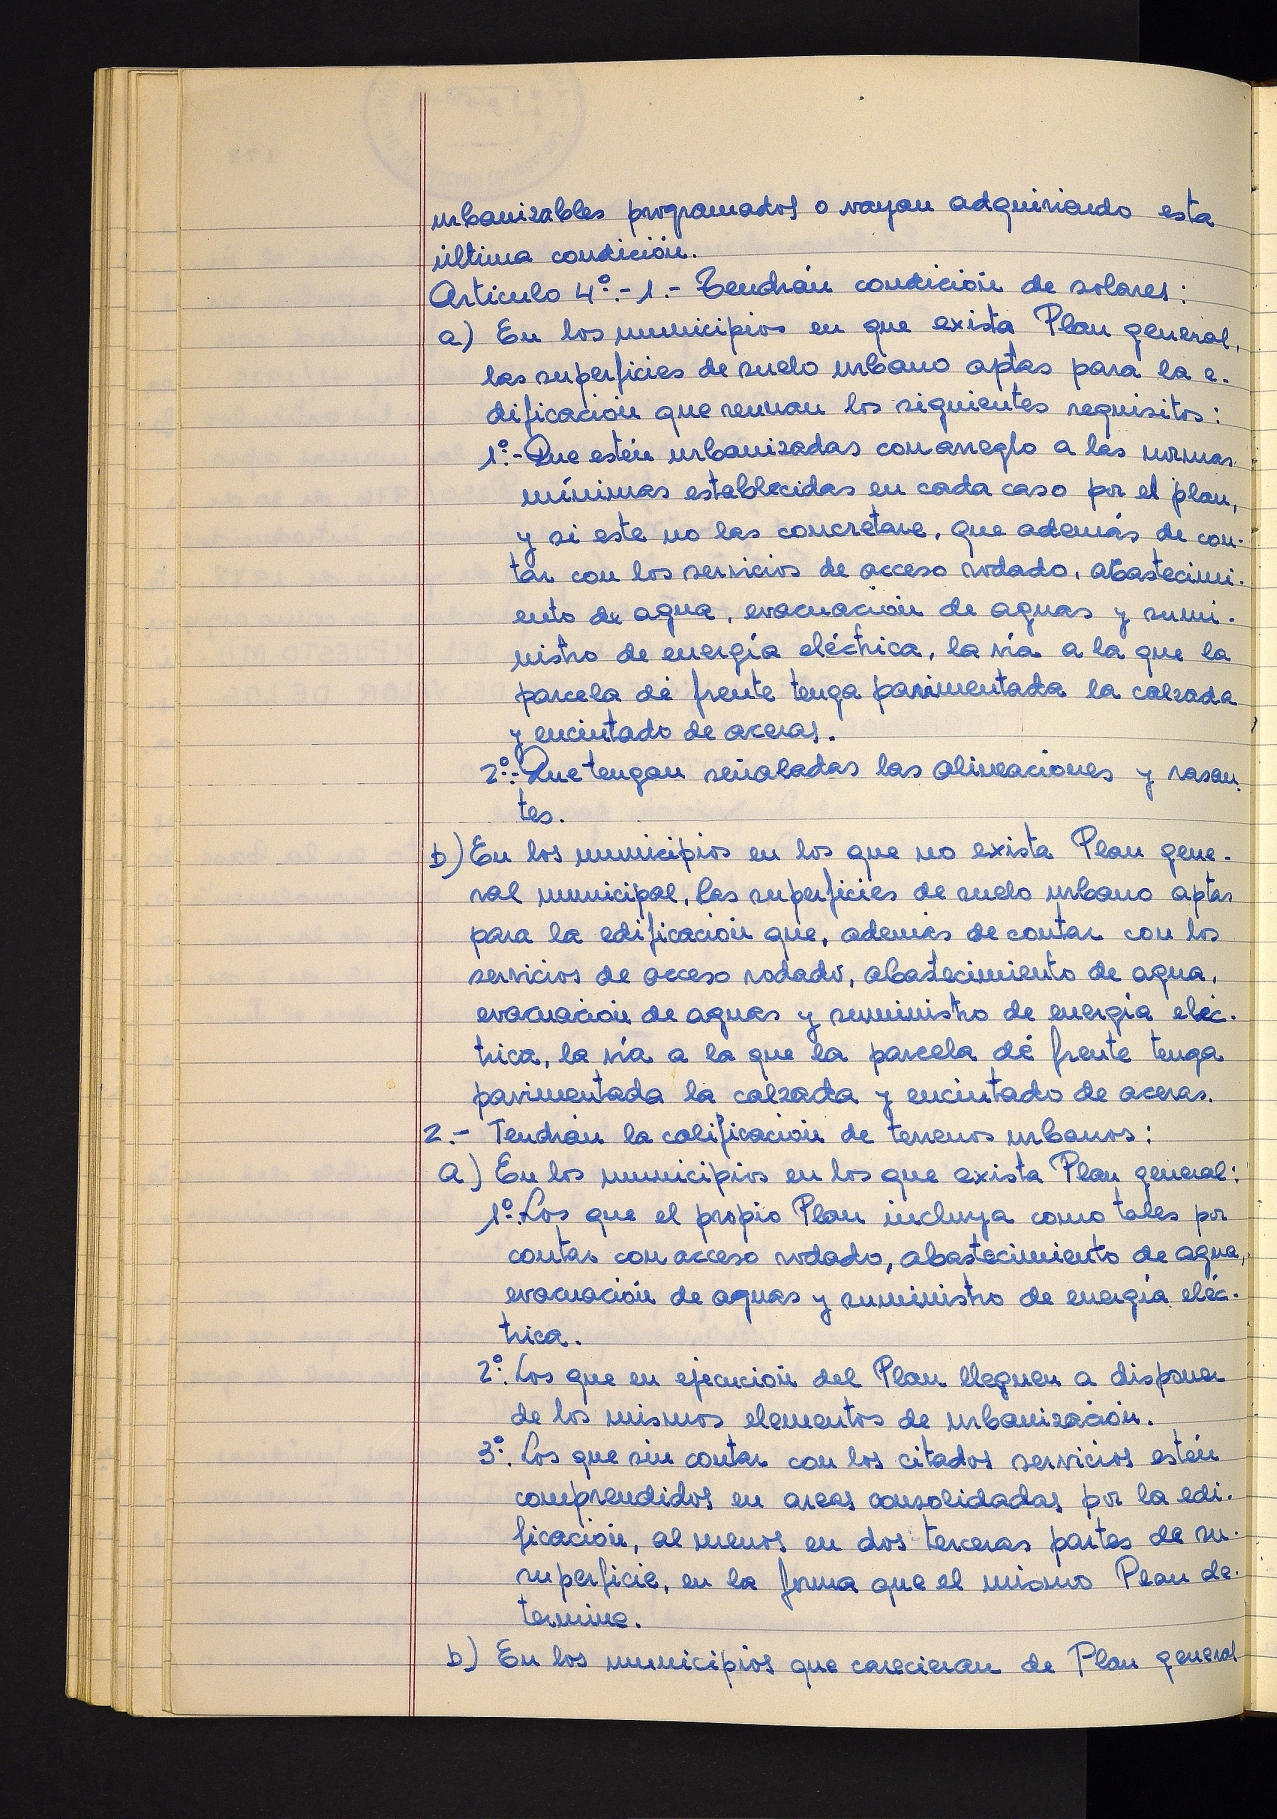 urbanizables programados o vayan adquiriendo esta
última condición.
Artículo 4º.- 1.- Tendrán condición de solares:
a) En los municipios en que exista Plan general,
las superficies de suelo urbano aptas para la e-
dificación que reunan los siguientes requisitos:
1º.- Que estén urbanizadas con arreglo a las normas
mínimas establecidas en cada caso por el plan,
y si este no las concretare, que además de con-
tar con los servicios de acceso rodado, abastecimi-
ento de agua, evacuación de aguas y sumi-
nistro de energía eléctrica, la vía a la que la
parcela dé frente tenga pavimentada la calzada
y encintado de aceras.
2º.- Que tengan señaladas las alineaciones y rasan-
tes.
b) En los municipios en los que no exista Plan gene-
ral municipal, las superficies de suelo urbano aptas
para la edificación que, además de contar con los
servicios de acceso rodado, abastecimiento de agua,
evacuación de aguas y suministro de energía eléc-
trica, la vía a la que la parcela dé frente tenga
pavimentada la calzada y encintado de aceras.
2.- Tendrán la calificación de terrenos urbanos:
a) En los municipios en los que exista Plan general:
1º. Los que el propio Plan incluya como tales por
contar con acceso rodado, abastecimiento de agua,
evacuación de aguas y suministro de energía eléc-
trica.
2º. Los que en ejecución del Plan lleguen a disponer
de los mismos elementos de urbanización.
3º. Los que sin contar con los citados servicios estén
comprendidos en areas consolidadas por la edi-
ficación, al menos en dos terceras partes de su
superficie, en la forma que el mismo Plan de-
termine.
b) En los municipios que carecieran de Plan general